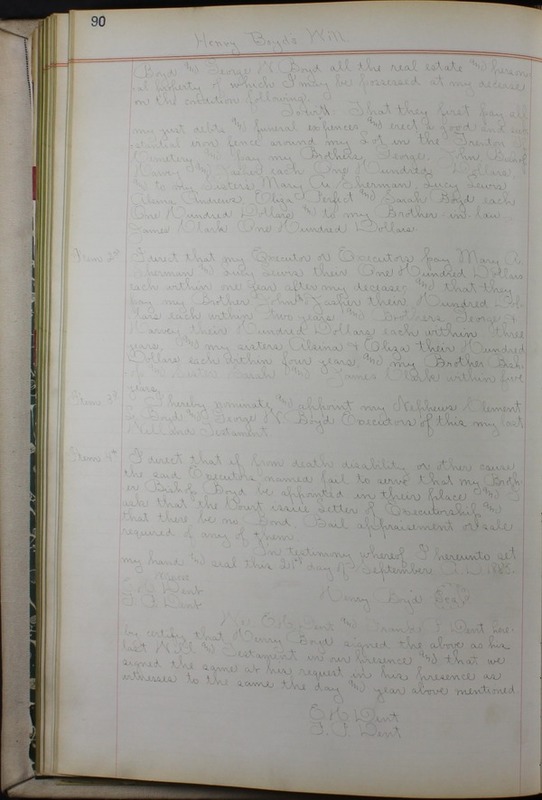 90
Henry Boyds Will
Boyd & George N Boyd all the real estate & person
al property of which I may be possessed at my decease
on the condition following.
To wit: That they first pay all
my just debts & funeral expences & erect a good and sub
stantial iron fence around my Lot in the Trenton
Cemetery & pay my Brothers, George, John Bishop
Harvey & Fasher each One Hundred Dollars,
& to my Sisters Mary A. Sherman Lucy Lewis
Alsina Andrews Eliza Perfect & Sarah Boyd each
One Hundred Dollars & to my Brother-in-law
James Clark One Hundred Dollars
Item 2d I direct that my Executor or Executors pay Mary A.
Sherman & Lucy Lewis their One Hundred Dollars
each within one year after my decease; & that they
pay my Brother John & Fasher their Hundred Dol-
lars each within two years & Brothers George &
Harvey their Hundred Dollars each within three
years, & my sisters Alsina & Eliza their Hundred
Dollars each within four years, & my Brother Bish-
op & Sister Sarah & James Clark within five
years
Item 3d I hereby nominate & appoint my Nephews Clement
Boyd & George N Boyd Executors of this my last
Will and Testament.
Item 4th I direct that if from death disability or other cause
the said Executors named fail to serve that my Broth-
er Bishop Boyd be appointed in their place &
ask that the Court issue letter of Executorship &
that there be no Bond, Bail appraisement or sale
required of any of them.
In testimony whereof I hereunto set
my hand & seal this 21st day of September A.D. 1885.
O H Dent
F. P. Dent
Henry Boyd Seal
We O H Dent & Frank P. Dent here-
by certify that Henry Boyd signed the above as his
last Will & Testament in our presence & that we
signed the same at his request in his presence as
witnesses to the same the day & year above mentioned.
O H Dent
F. P. Dent